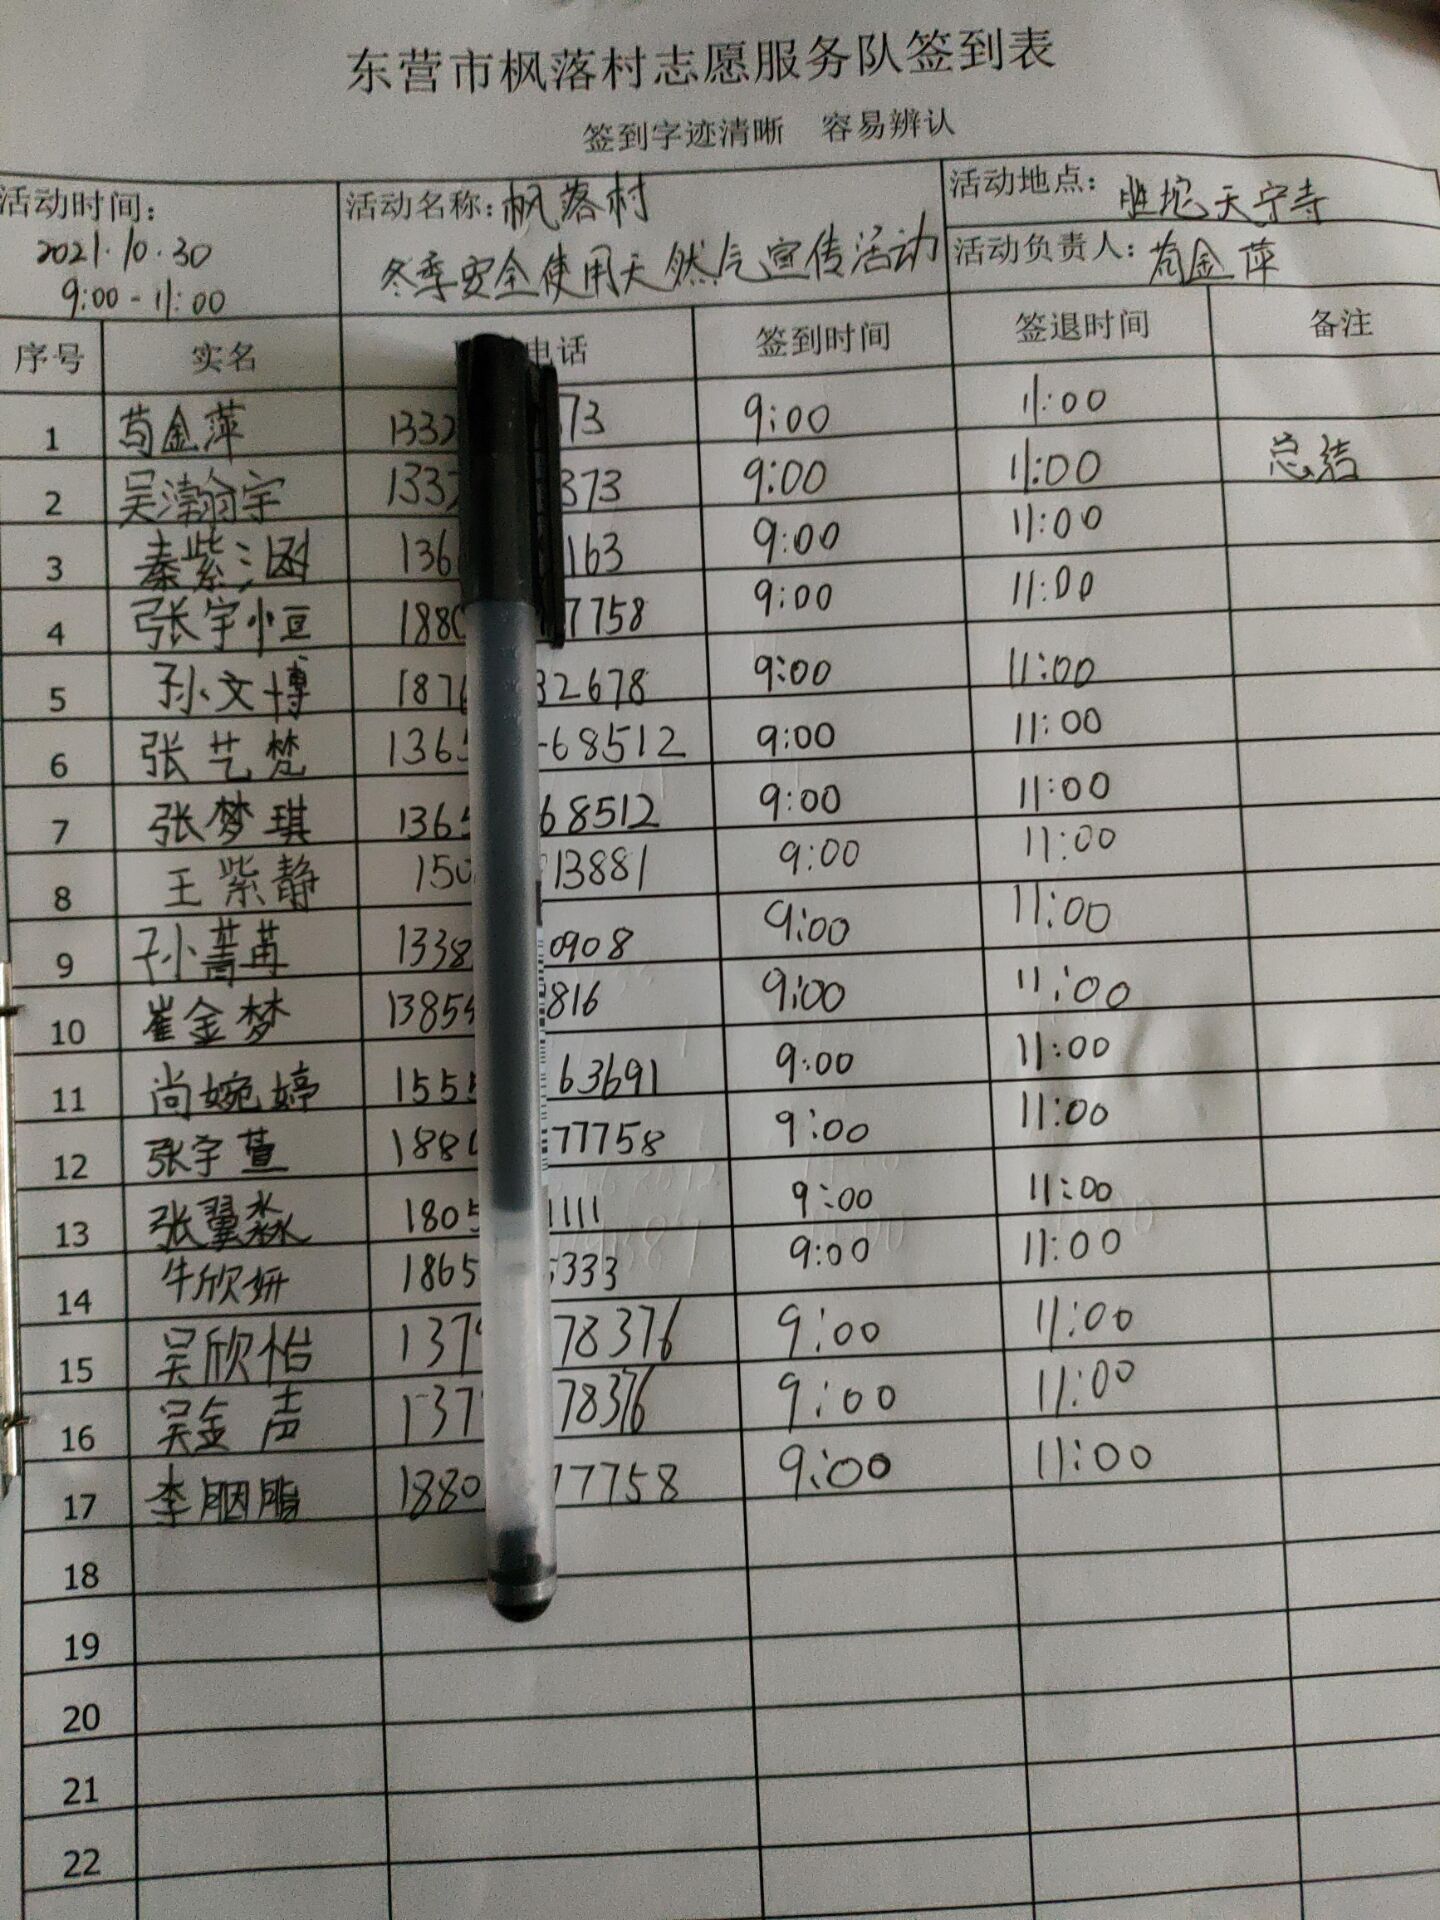 东营市枫落村志愿服务队签到表
签到字迹清晰 容易辨认
活动时间: 2021.10.30 9:00-11:00
活动名称: 枫落村 冬季安全使用天然气宣传活动
活动地点: 胜坨天宁寺
活动负责人: 苟金萍
序号 实名 电话 签到时间 签退时间 备注
1 苟金萍 1332 373 9:00 11:00
2 吴瀚宇 1332 373 9:00 11:00 总结
3 秦紫涵 136 163 9:00 11:00
4 张宇恒 1880 7758 9:00 11:00
5 孙文博 1876 32678 9:00 11:00
6 张艺梵 1365 68512 9:00 11:00
7 张梦琪 1365 68512 9:00 11:00
8 王紫静 150 13881 9:00 11:00
9 孙菁苒 1338 0908 9:00 11:00
10 崔金梦 13855 816 9:00 11:00
11 尚婉婷 1555 63691 9:00 11:00
12 张宇萱 1880 77758 9:00 11:00
13 张翼淼 1805 1111 9:00 11:00
14 牛欣妍 1865 5333 9:00 11:00
15 吴欣怡 137 78376 9:00 11:00
16 吴金声 137 78376 9:00 11:00
17 李胭脂 1880 77758 9:00 11:00
18
19
20
21
22